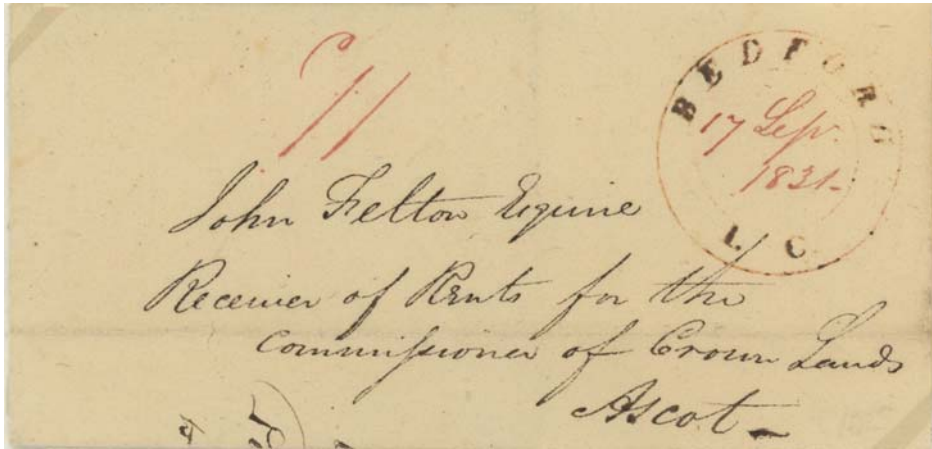 BEDFORD
17 Sep.
1831-
L C
John Felton Esquire
Receiver of Rents for the
Commissioner of Crown Lands
Ascot -